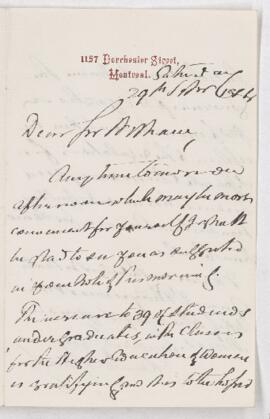 1157 Dorchester Street,
Montreal. Saturday
29th
Dear Sir William
Any time tomorrow
afternoon which may be most
convenient for yourself I shall
be glad to see you as suggested
in your note of this morning.
The increase to 39 of students
undergraduates, in the Classes
for the Higher Education of Women
is gratifying and this to the